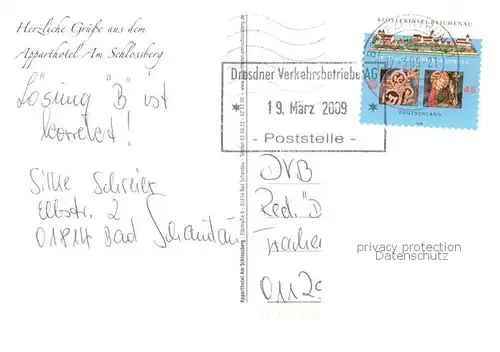 Herzliche Grüße aus dem
Apparthotel Am Schlossberg
Lösung "B" ist
korrekt!
Silke Schreier
Elbstr. 2
01814 Bad Schandau
Apparthotel Am Schlossberg - Elbstraße 6 - 01814 Bad Schandau - Telefon
KLOSTERINSEL REICHENAU
45
DEUTSCHLAND
Dresdner Verkehrsbetriebe AG
* 19. März 2009 *
- Poststelle -
DVB
Red. "D
Trache
0112
privacy protection
Datenschutz